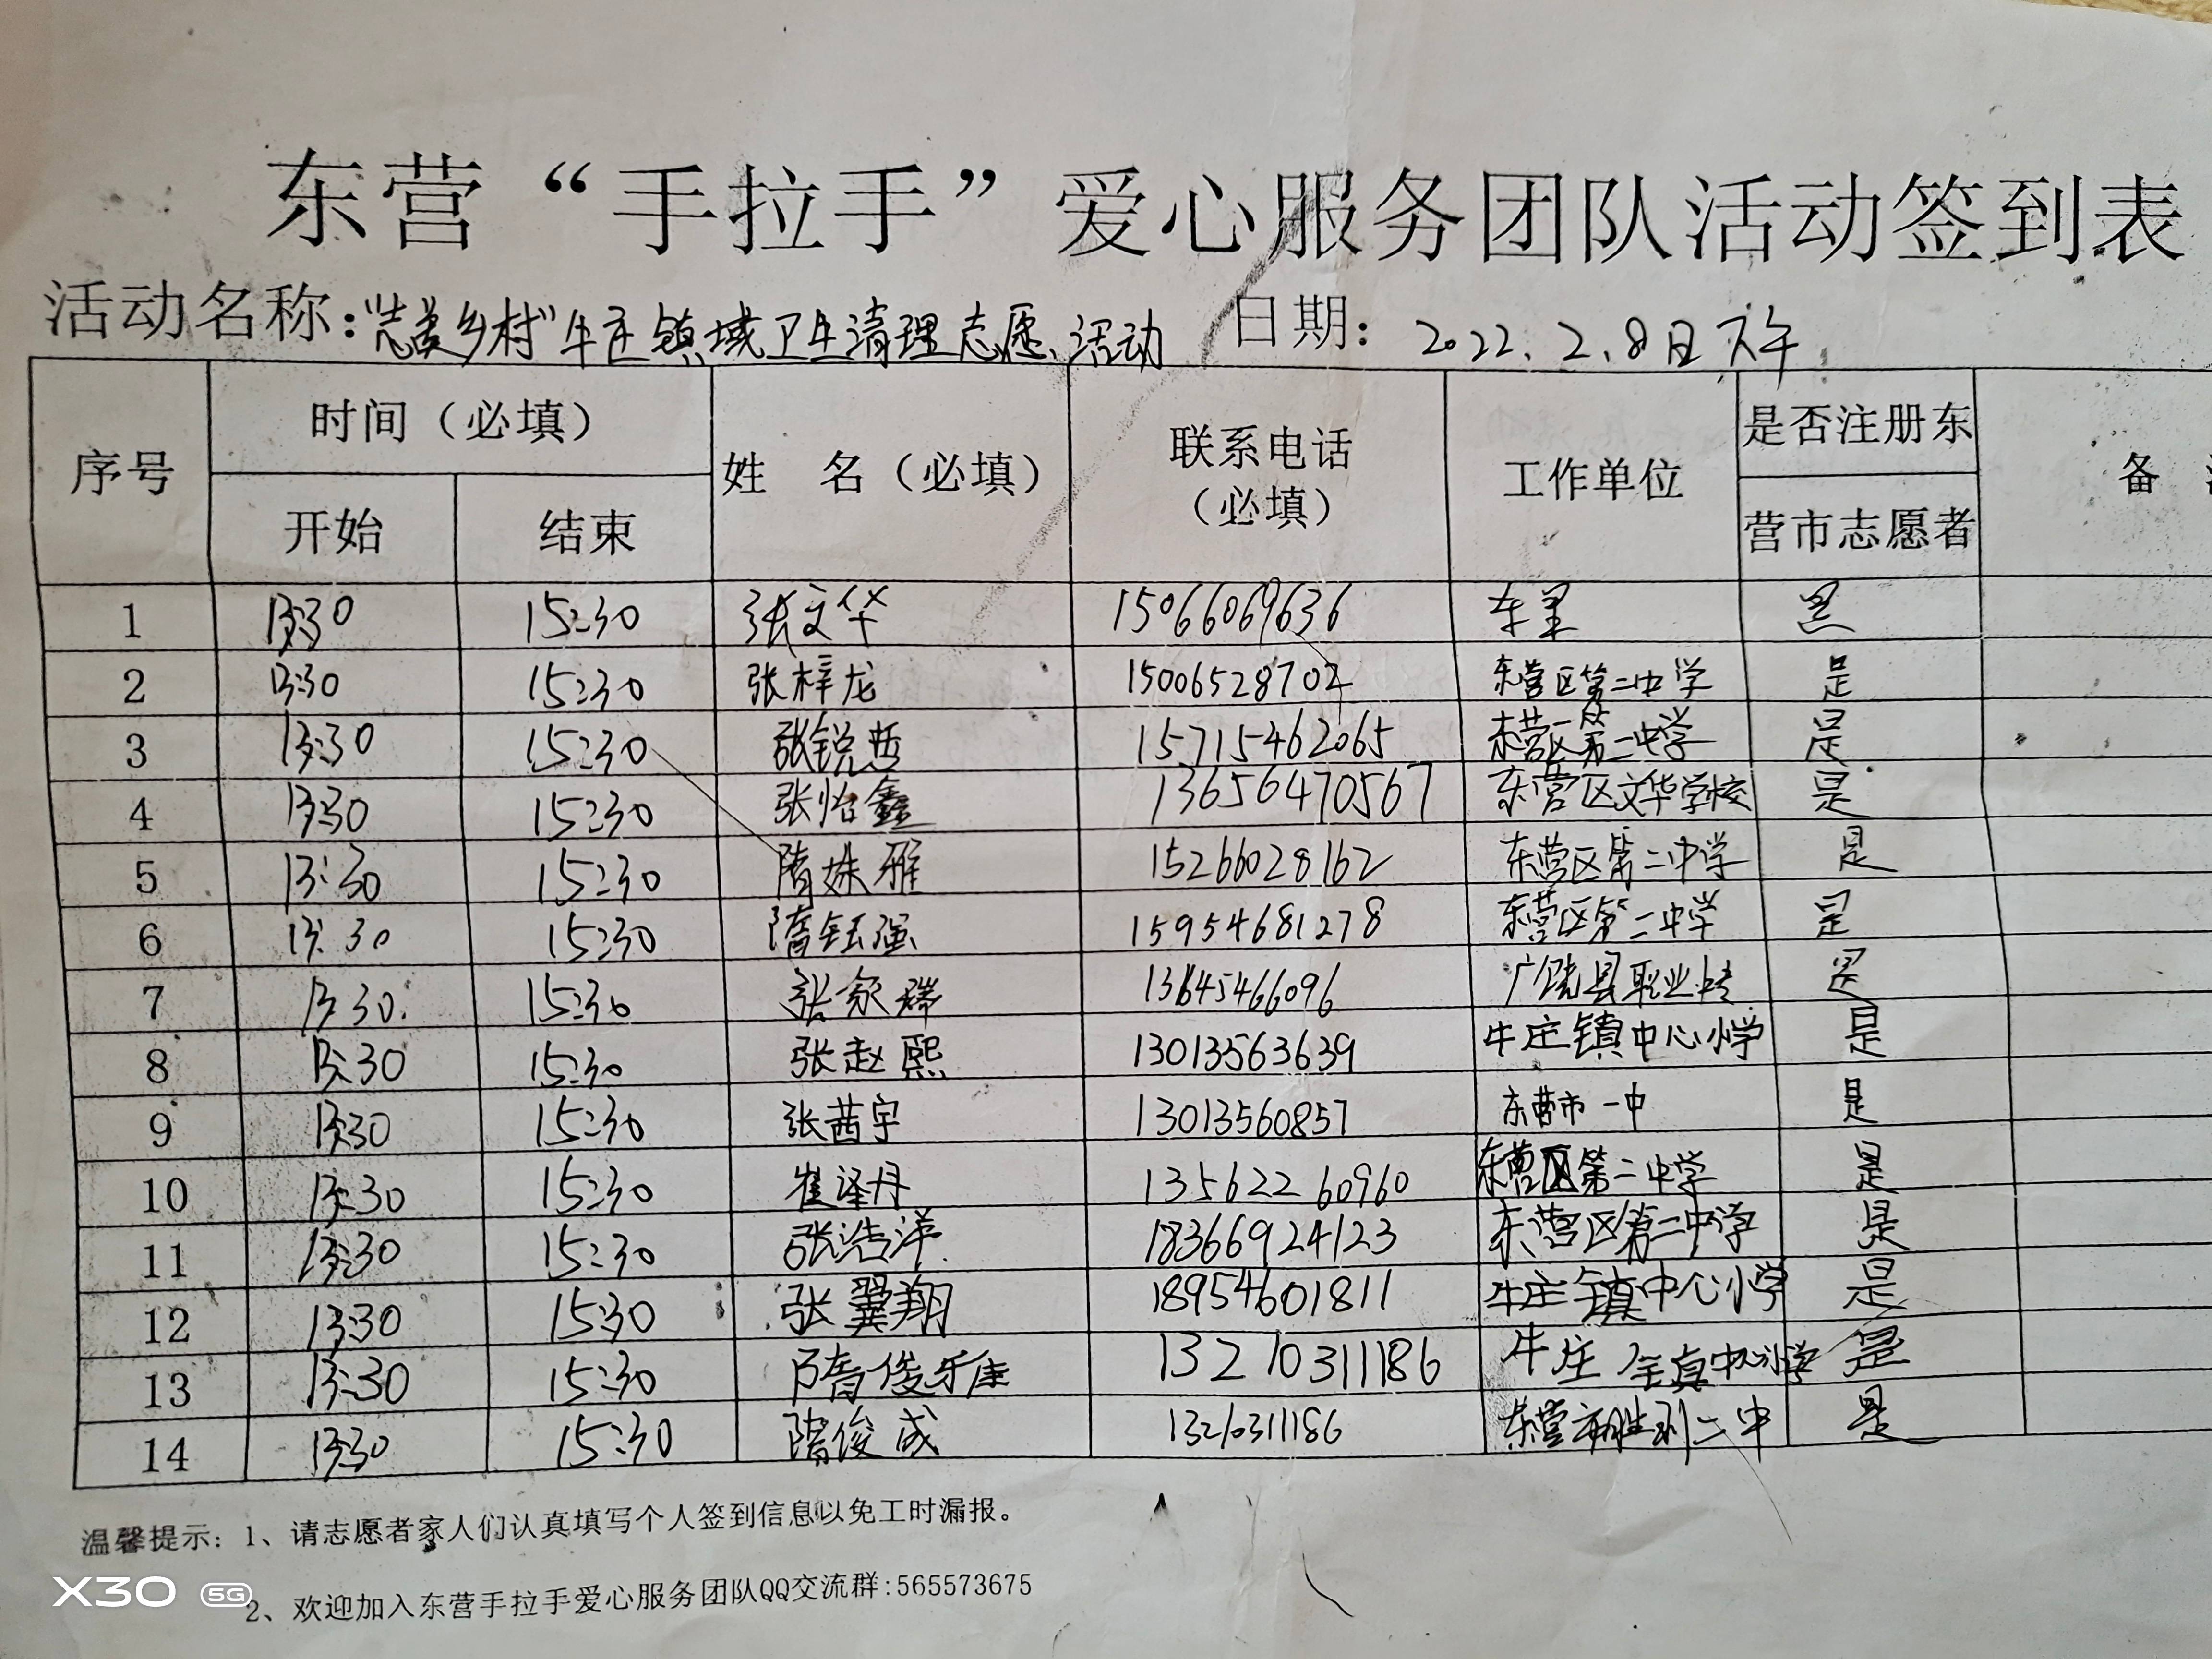 东营“手拉手”爱心服务团队活动签到表
活动名称:“志美乡村”牛庄镇域卫生清理志愿活动 日期: 2022.2.8日下午
序号 时间（必填） 姓 名（必填） 联系电话（必填） 工作单位 是否注册东营市志愿者 备
开始 结束
1 13:30 15:30 张文华 15066069636 车里 是
2 13:30 15:30 张梓龙 15006528702 东营区第二中学 是
3 13:30 15:30 张锐哲 15715462065 东营区第二中学 是
4 13:30 15:30 张怡鑫 13656470567 东营区文华学校 是
5 13:30 15:30 隋姝雅 15266028162 东营区第二中学 是
6 13:30 15:30 隋钰强 15954681278 东营区第二中学 是
7 13:30. 15:30 张家瑞 13645466096 广饶县职业中专 是
8 13:30 15:30 张赵熙 13013563639 牛庄镇中心小学 是
9 13:30 15:30 张茜宇 13013560857 东营市一中 是
10 13:30 15:30 崔泽丹 13562260960 东营区第二中学 是
11 13:30 15:30 张浩洋 18366924123 东营区第二中学 是
12 13:30 15:30 张翼翔 18954601811 牛庄镇中心小学 是
13 13:30 15:30 隋俊乐佳 13210311186 牛庄镇中心小学 是
14 13:30 15:30 隋俊成 1321031186 东营市胜利二中 是
温馨提示: 1、请志愿者家人们认真填写个人签到信息以免工时漏报。
2、欢迎加入东营手拉手爱心服务团队QQ交流群:565573675
X30 5G